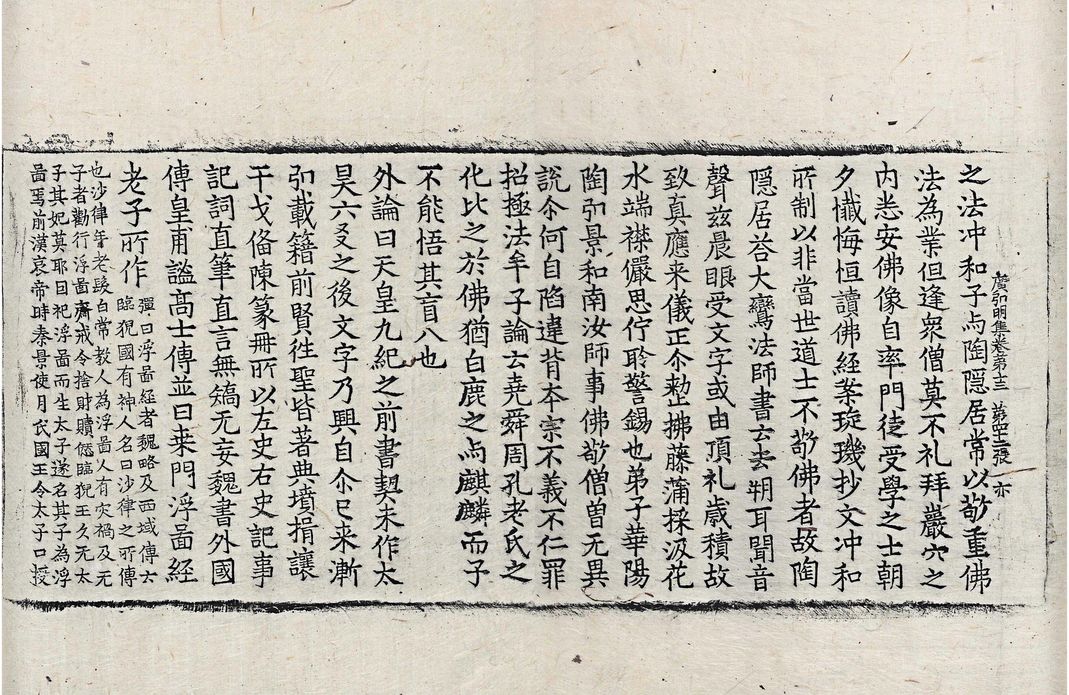 廣弘明集卷第十三 第四十二張 亦
之法冲和子与陶隠居常以敬重佛
法為業但逢衆僧莫不礼拜巖穴之
内悉安佛像自率門徒受學之士朝
夕懺悔恒讀佛經案琁璣抄文冲和
所制以非當世道士不敬佛者故陶
隠居荅大鸞法師書云去朔耳聞音
聲兹晨眼受文字或由頂礼歳積故
致真應来儀正尒慙拂藤蒲採汲花
水端襟儼思佇聆警錫也弟子華陽
陶弘景和南汝師事佛敬僧曽无異
說尒何自陷違背夲宗不義不仁罪
招極法牟子論云堯舜周孔老氏之
化比之於佛猶白鹿之与麒麟而子
不能悟其盲八也
外論曰天皇九紀之前書契未作太
昊六爻之後文字乃興自尒已来漸
弘載籍前賢徃聖皆著典墳揖讓
干戈俻陳篆冊所以左史右史記事
記詞直筆直言無矯无妄魏書外國
傳皇甫謐髙士傳並曰桒門浮啚經
老子所作
彌曰浮啚經者魏略及西域傳云
臨猊國有神人名曰沙律之所傳
也沙律年老䟽白常教人為浮啚人有灾禍及无
子者勸行浮啚齋戒令捨財贖愆臨猊王久无太
子其妃莫耶因祀浮啚而生太子遂名其子為浮
啚焉前漢哀帝時秦景使月氏國王令太子口授